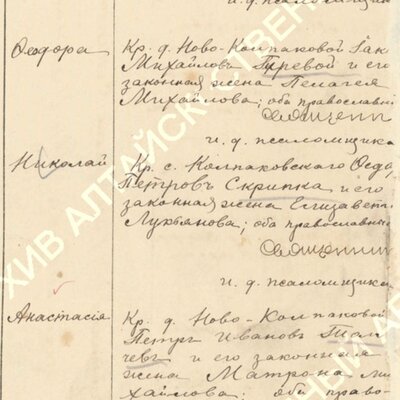 и. д. псаломщика
Ѳеодора
Кр. д. Ново-Колпаковой Іак
Михайловъ Гуревой и его
законная жена Пелагея
Михайлова; оба православн
Священни
и. д. псаломщика
Николай
Кр. с. Колпаковскаго Ѳеод
Петровъ Скрипка и его
законная жена Елизавет
Лукьянова; оба православны
Священни
и. д. псаломщика
Анастасія
Кр. д. Ново-Колпаковой
Петръ Ивановъ Тол
чевъ и его законная
жена Матрона Ми
хайлова; оба право-
ХИВ АЛТАЙСК
СТВЕН